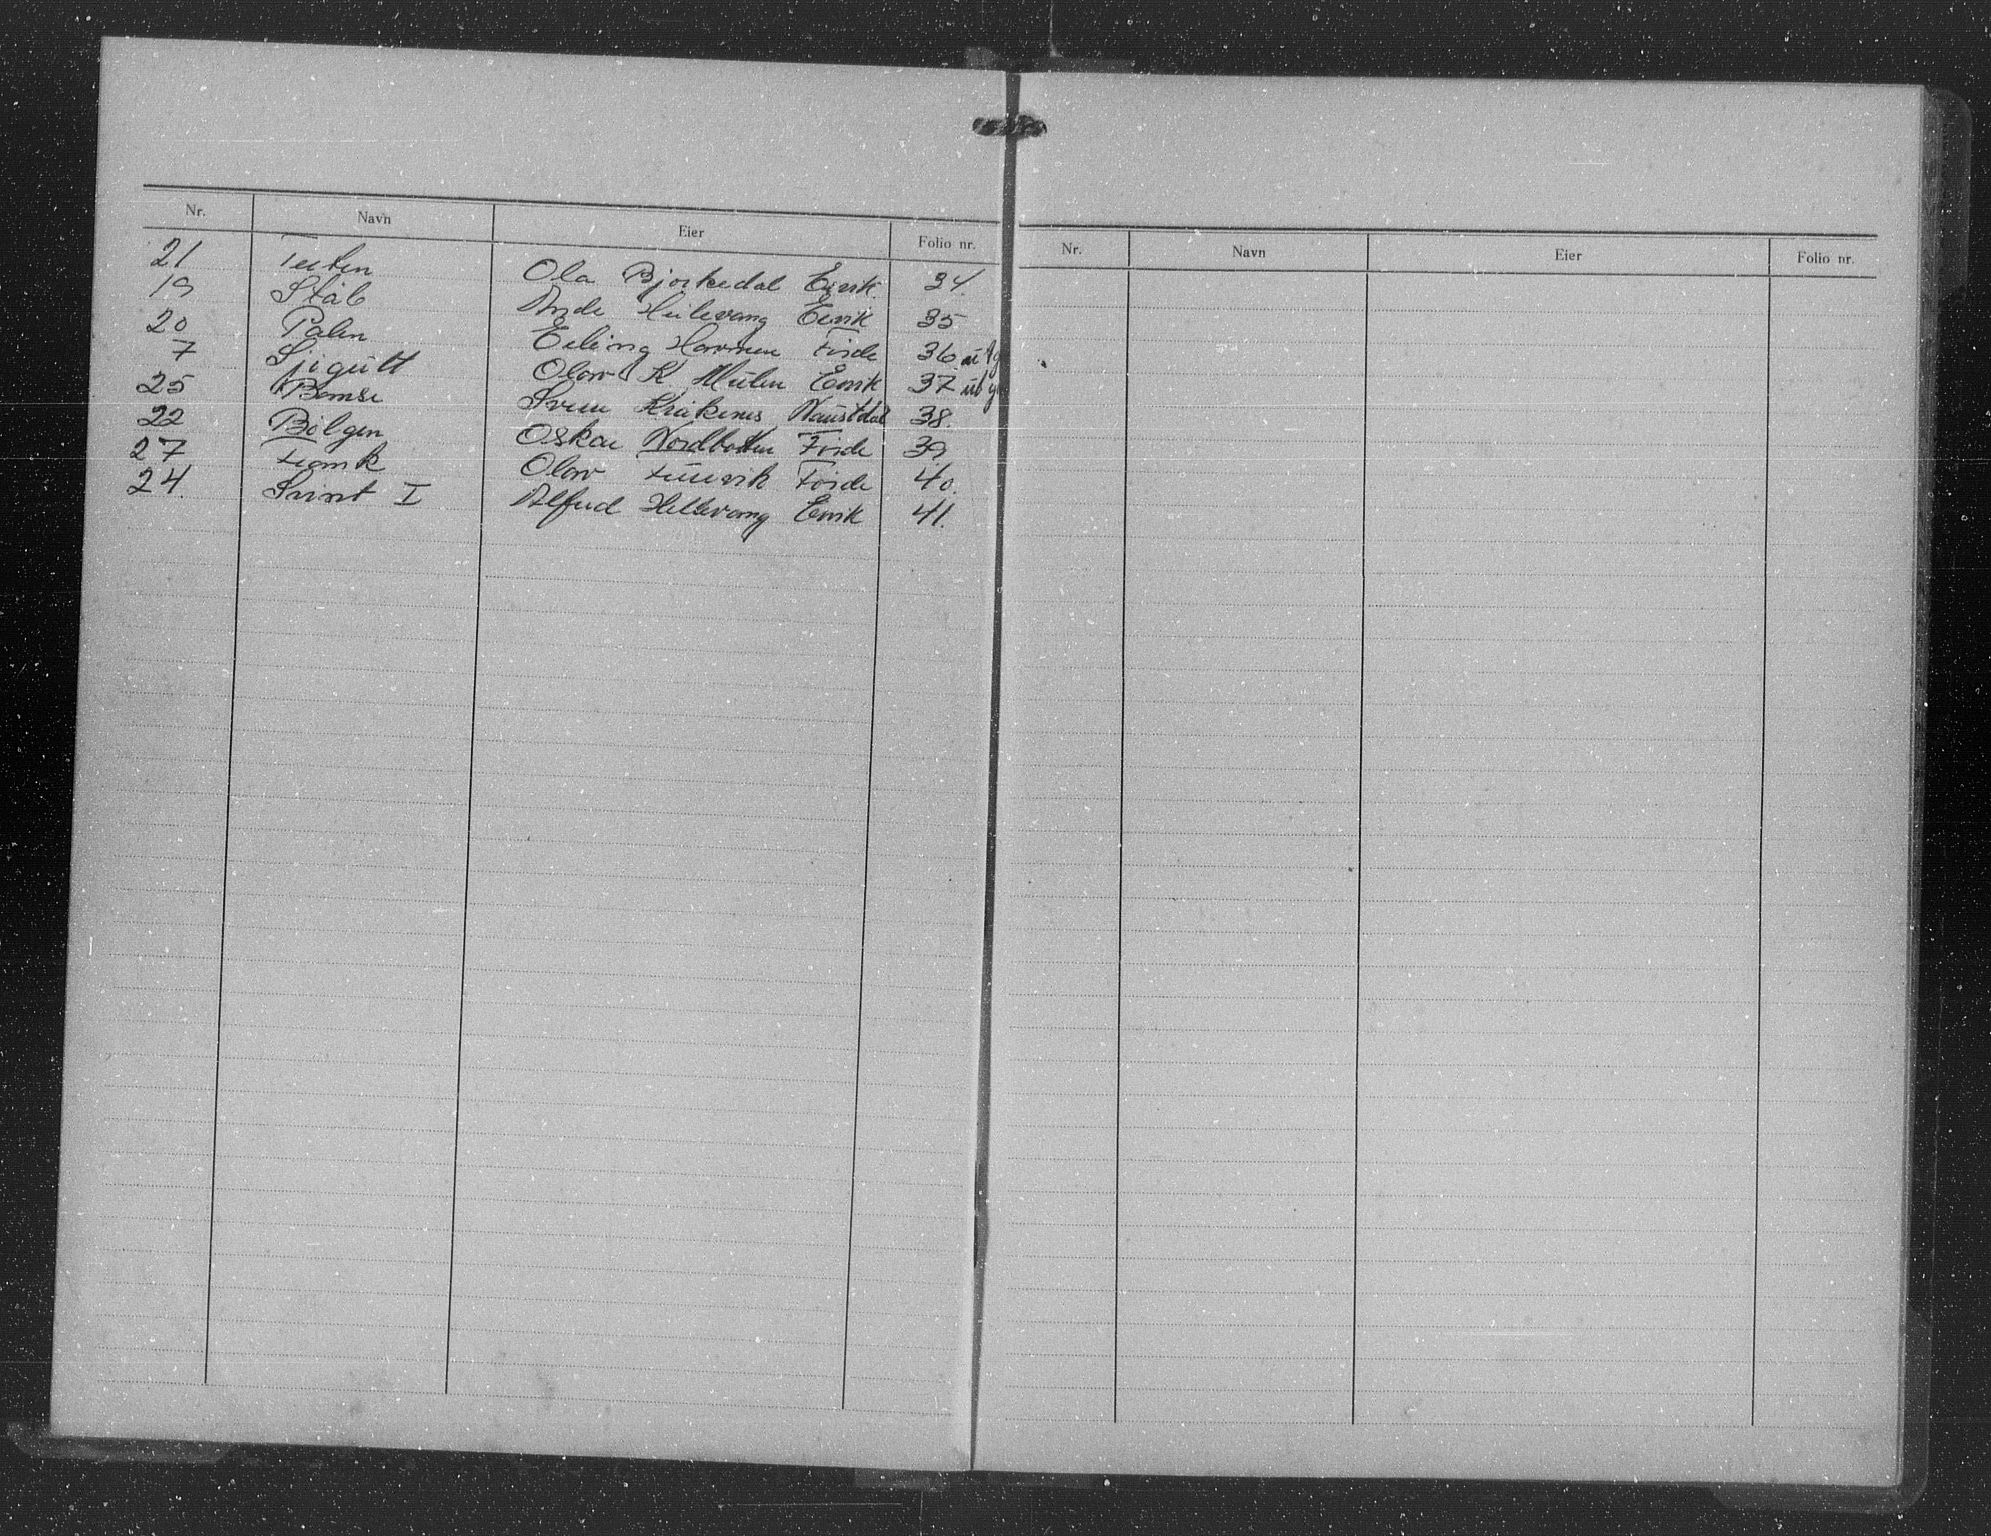 Nr. Navn Eier Folio nr.
21 Teisten Ola Bjørkedal Eivik 34.
19 Stål Ande Hellevang Eivik 35
20 Palen Erling Hammen Førde 36 utg
7 Sjøgutt Olav K Mulen Eivik 37 utg
25 Bamse Svein Kråkenes Naustdal 38.
22 Bølgen Oskar Nordbotten Førde 39
27 Frank Olav Førde 40.
24. Sprint I Alfred Hellevang Eivik 41.
Nr. Navn Eier Folio nr.